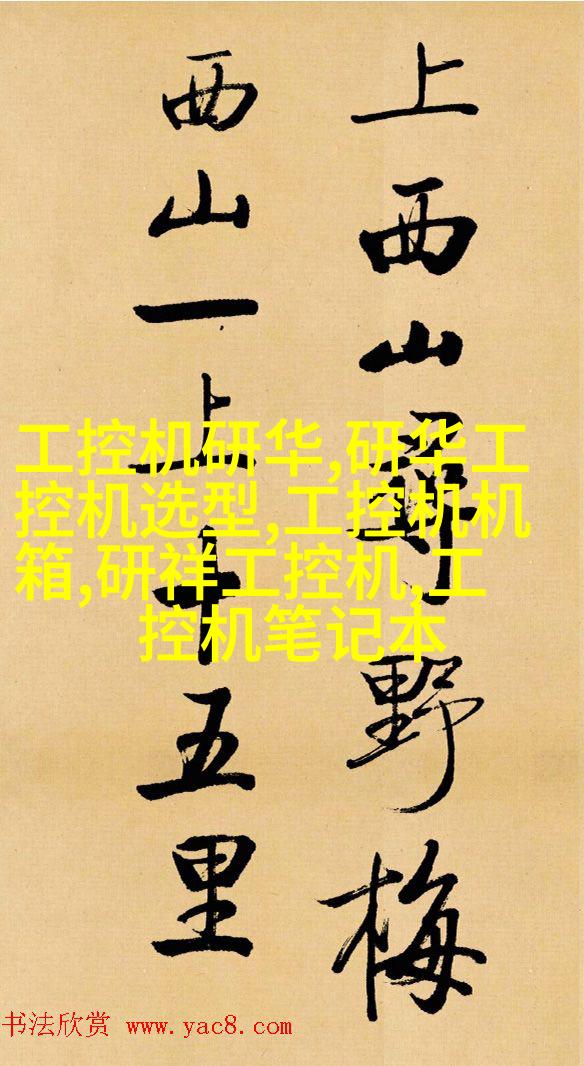 上西山尋野梅
西山一上十五里
工控机研华,研华工
控机选型,工控机机
箱,研祥工控机,工
控机笔记本
书法欣赏 www.yac8.com